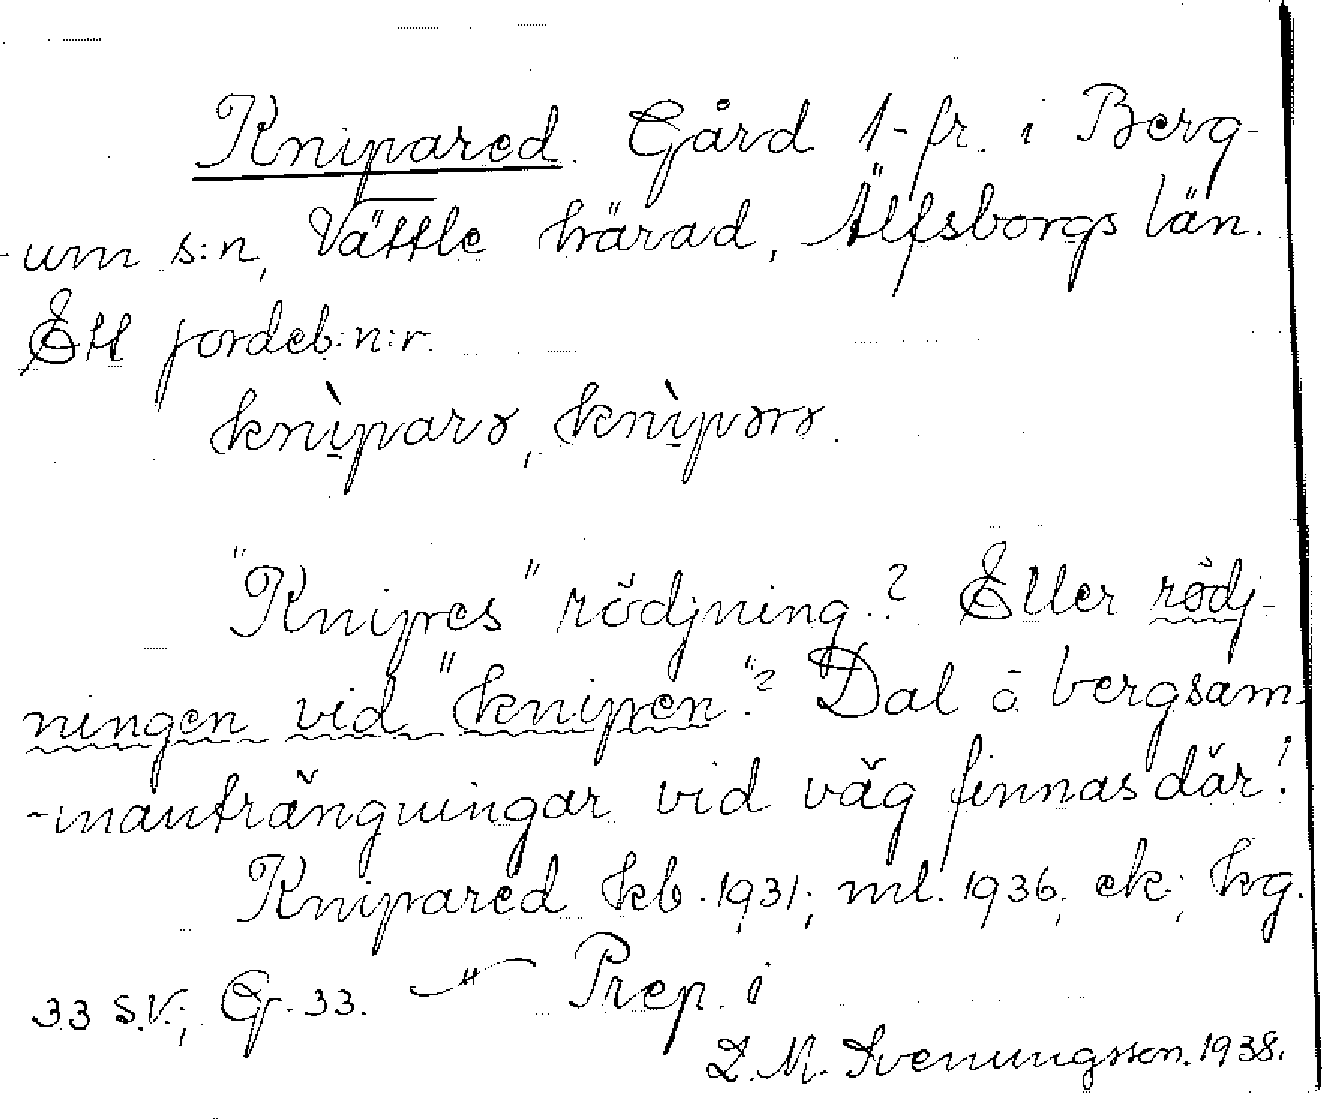 Knipared. Gård 1-fr. i Berg-
-um s:n, Vättle härad, Älfsborgs län.
Ett jordeb:n:r.
knìparə, knìpərə.
"Knipes" rödjning.? Eller rödj-
ningen vid "knipen"? Dal o. bergsam-
-manträngningar vid väg finnas där!
Knipared kb. 1931; ml. 1936, ek; hg.
33 S.V.; G. 33. — " — Prep. i
L. M. Svenungsson. 1938.